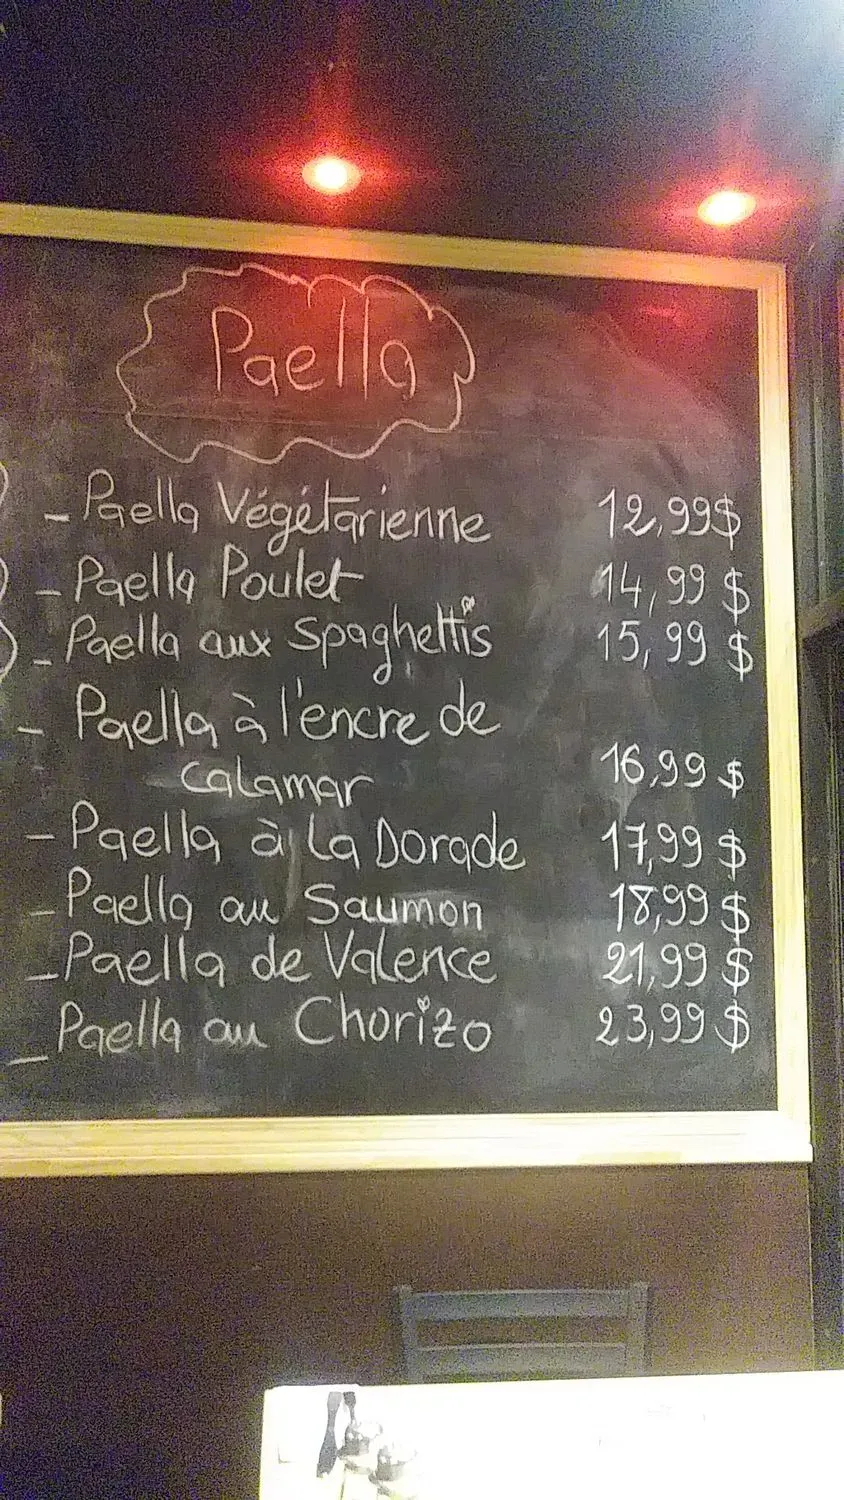 Paella
- Paella Végétarienne 12,99$
- Paella Poulet 14,99 $
- Paella aux Spaghettis 15,99 $
- Paella à l'encre de
calamar 16,99 $
- Paella à la Dorade 17,99 $
- Paella au Saumon 18,99 $
- Paella de Valence 21,99 $
- Paella au Chorizo 23,99 $